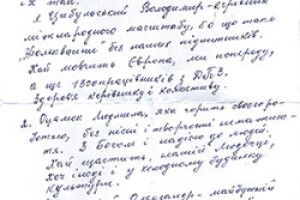 і к там.
1. Цибульський Володимир - керівник
міжнародного масштабу, бо що таке
без наших підписників.
Хай мовчить Європа, ми попереду,
а ще 1300 працівників з
Здоров'я керівнику і колективу.
2. Оцалюк Людмила, яка горить своєю ро-
ботою, без пісні і творчості не
ся. З Богом і надією до людей.
Хай щастить, нашій Людмилі,
хоч іноді і у холодному будинку
культури.
Олександр - майбутній